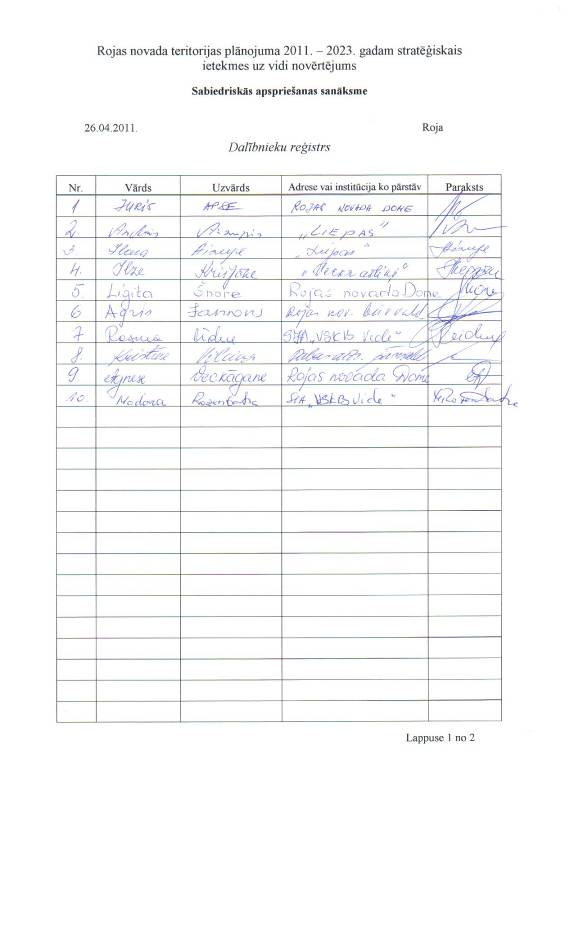 Rojas novada teritorijas plānojuma 2011. – 2023. gadam stratēģiskais
ietekmes uz vidi novērtējums
Sabiedriskās apspriešanas sanāksme
26.04.2011. Roja
Dalībnieku reģistrs
Nr. Vārds Uzvārds Adrese vai institūcija ko pārstāv Paraksts
1 JURIS APSE ROJAS NOVADA DOME
2. "LIEPAS"
3 "Liepas"
4. Ilze
5. Ligita Šnore Rojas novada Dome
6 Agris Rojas nov.
7 SIA "VSKB Vide"
8.
9 Agnese Veckāgane Rojas novada Dome
10. Madara SIA "VSKB Vide"
Lappuse 1 no 2